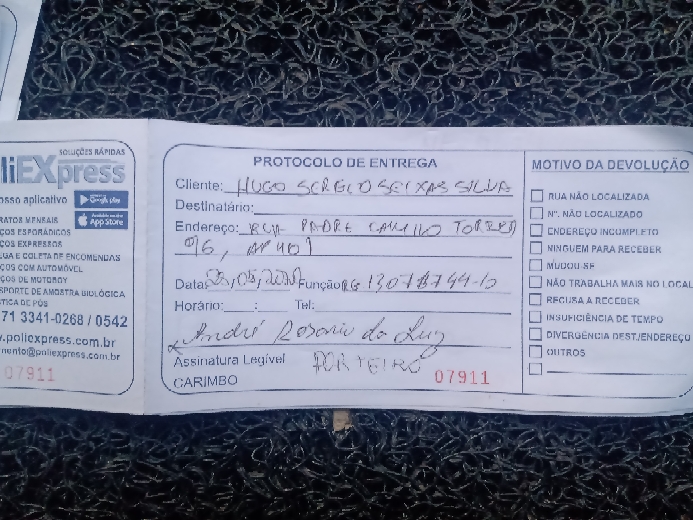 SOLUÇÕES RÁPIDAS
liEXpress
osso aplicativo
Google play
App Store
RATOS MENSAIS
ÇOS ESPORÁDICOS
ÇOS EXPRESSOS
EGA E COLETA DE ENCOMENDAS
ÇOS COM AUTOMÓVEL
ÇOS DE MOTOBOY
SPORTE DE AMOSTRA BIOLÓGICA
STICA DE PÓS
71 3341-0268 / 0542
.poliexpress.com.br
mento@poliexpress.com.br
07911
PROTOCOLO DE ENTREGA
Cliente: HUGO SERGIO SEIXAS SILVA
Destinatário:
Endereço: RUA PADRE CAMILLO TORREND
96, AP 401
Data: Função RG
Horário: : Tel:
André Rosario da Luz
Assinatura Legível PORTEIRO
CARIMBO 07911
MOTIVO DA DEVOLUÇÃO
RUA NÃO LOCALIZADA
Nº. NÃO LOCALIZADO
ENDEREÇO INCOMPLETO
NINGUEM PARA RECEBER
MUDOU-SE
NÃO TRABALHA MAIS NO LOCAL
RECUSA A RECEBER
INSUFICIÊNCIA DE TEMPO
DIVERGÊNCIA DEST./ENDEREÇO
OUTROS